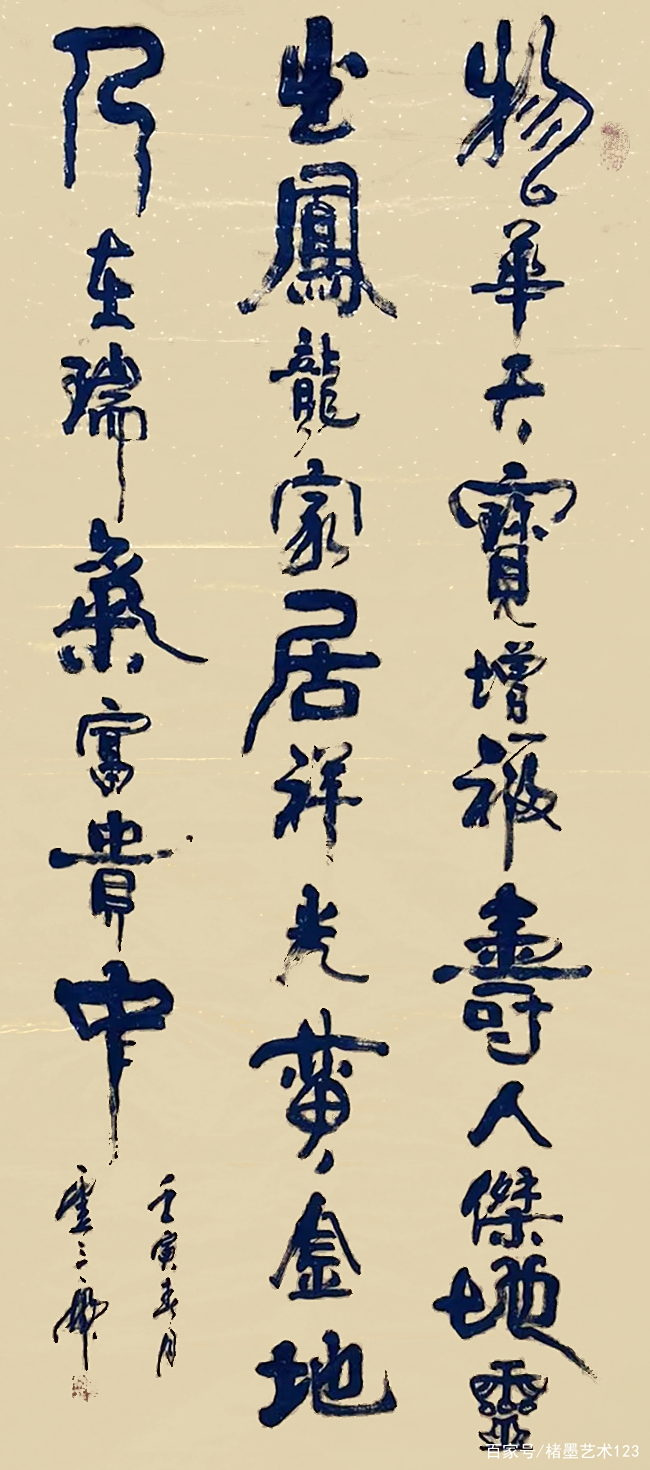 物華天寶增福壽人傑地靈
出鳳龍家居祥光黃金地
人在瑞氣富貴中
壬寅春月
百家号/楮墨艺术123